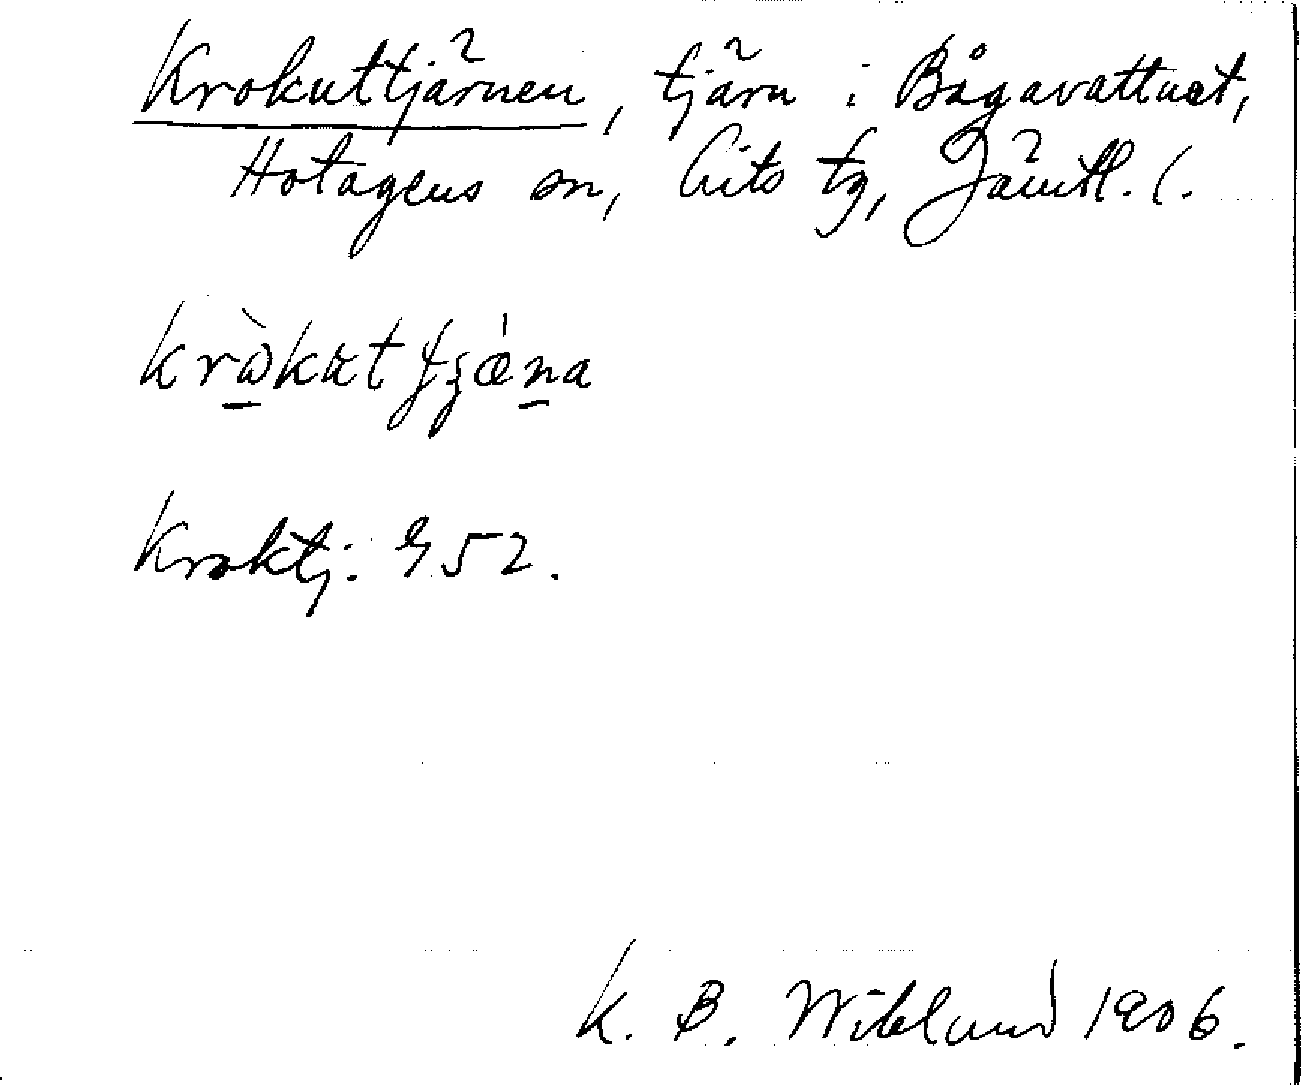 Krokuttjärnen, tjärn i Bågavattnet,
Hotagens sn, Lits tg, Jämtl. l.
Kroktj. 952.
K. B. Wiklund 1906.